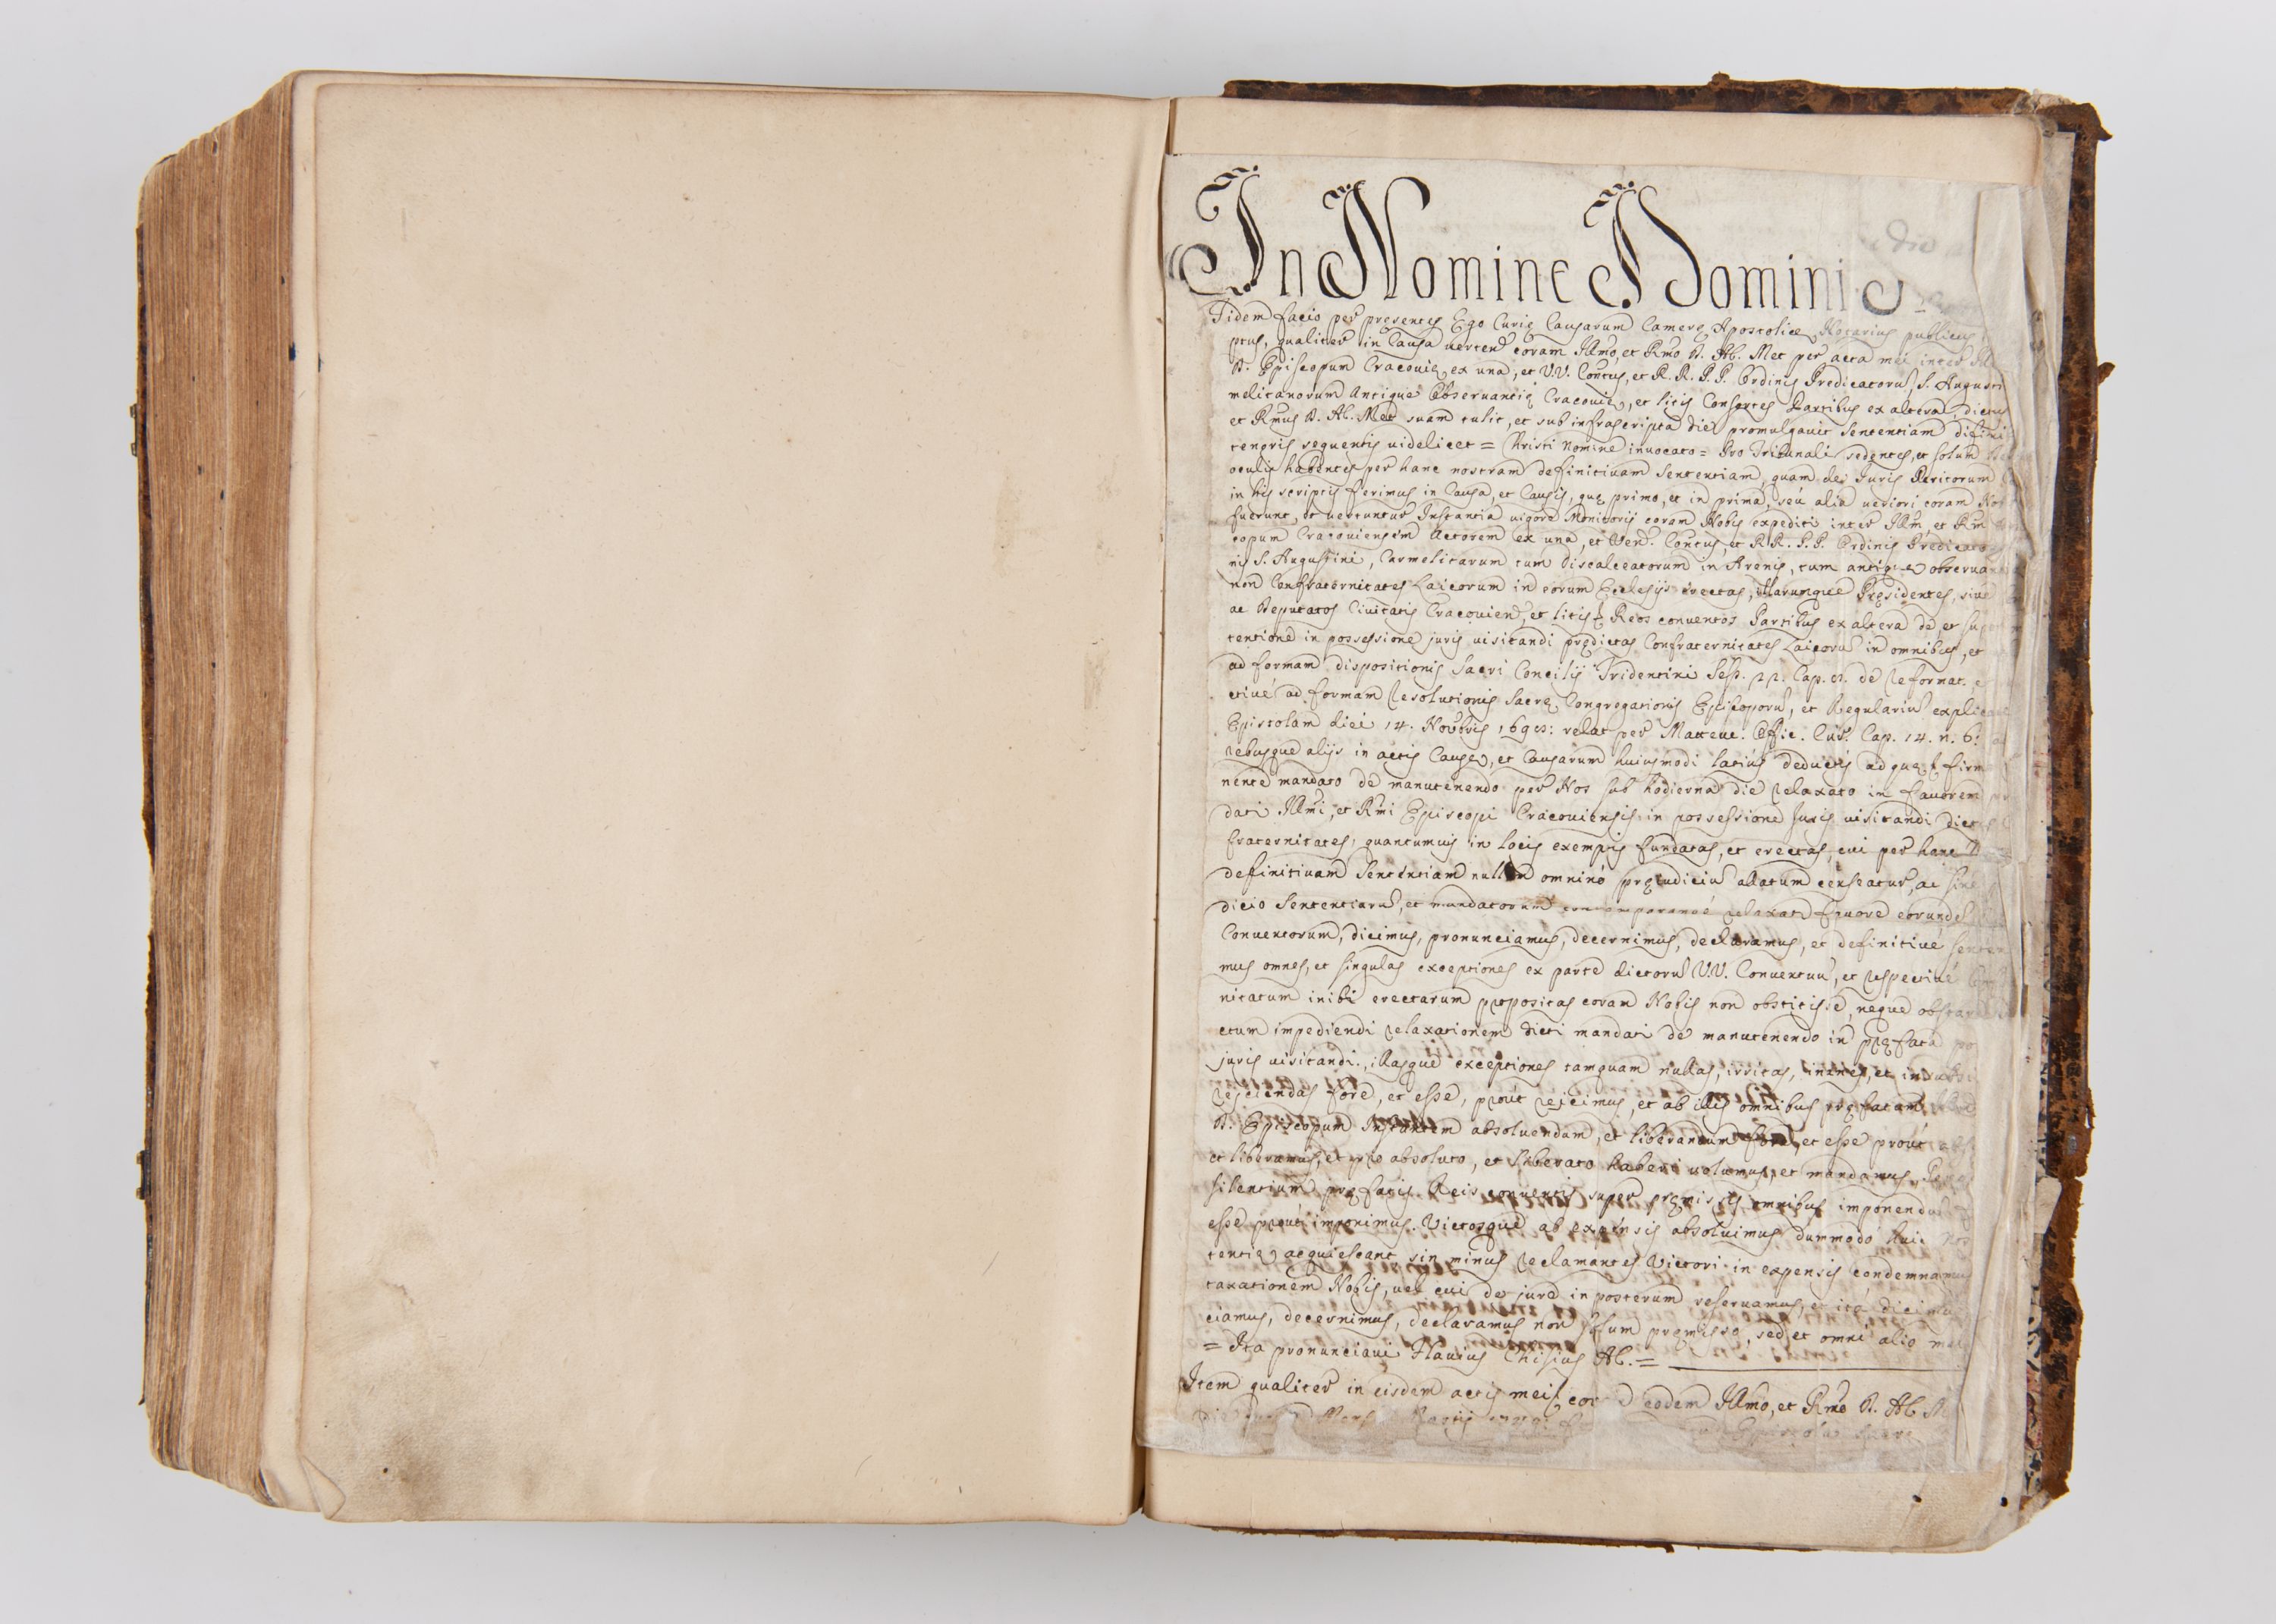 In Nomine Domini
Fidem facio per presentes Ego Curię Causarum Camerę Apostolice Notarius publicus
ptus, qualiter in Causa verten coram Illmo, et Rmo D. AC. Met per acta mei inter Ill
D. Episcopum Cracovię ex una, et V.V. Contus, et R. R. P. P. Ordinis Predicatoru, S. Augusti
melitanorum Antique Observantię Cracovię, et litis Consortes Partibus ex altera, dictus
et Rmus D. AC. Met suam tulit, et sub infrascripta die promulgavit sententiam difini
tenoris sequentis videlicet = Christi Nomine invocato = Pro Tribunali sedentes, et solum
oculis habentes per hanc nostram definitivam sententiam, quam de Juris Peritorum
in his scriptis ferimus in Causa, et Causis, quę primo, et in prima, seu alia veriori coram Nob
fuerunt, et vertuntur Instantia vigore Monitorij coram Nobis expediti inter Illm, et Rm
copum Cracoviensem Actorem ex una, et Ven. Contus, et RR. P.P. Ordinis Predicato
nis S. Augustini, Carmelitarum tum discalceatorum in Arenis, tum antiquę observan
non Confraternitates Laicorum in eorum Ecclesijs erectas, illarumque Pręsidentes, sive
ac Deputatos Civitatis Cracovien, et litis Reos conventos Partibus ex altera de et sup
tentione in possessione juris visitandi prędictas Confraternitates Laicoru in omnibus, et
ad formam dispositionis Sacri Concilij Tridentini Sess. 22. Cap. 8. de Reformat. e
ctivè ad formam Resolutionis Sacrę Congregationis Episcoporu, et Regulariu explica
Epistolam diei 14. Novbris 1698: relat per Matteuc. Offic. Cur. Cap. 14. n. 6:
rebusque alijs in actis Causę, et Causarum huiusmodi latius deductis ad quę firm
nente mandato de manutenendo per Nos sub hodierna die relaxato in favorem
dati Illmi, et Rmi Episcopi Cracoviensis in possessione Juris visitandi dict
fraternitates, quantumvis in locis exemptis fundatas, et erectas, cui per hanc
definitivam Sententiam nullum omninò pręiudiciu allatum censeatur, ac sine
dicio Sententiaru, et mandatorum contemporaneè relaxat favore eorunde
Conventorum, dicimus, pronunciamus, decernimus, declaramus, et definitivè senten
mus omnes, et singulas exceptiones ex parte dictoru V.V. Conventuu, et respectivè
nitatum inibi erectarum propositas coram Nobis non obstitisse, neque obstare
ctum impediendi relaxationem dicti mandati de manutenendo in pręfata po
juris visitandi, illasque exceptiones tamquam nullas, irritas, inanes, et
reijciendas fore, et esse, prout reicimus, et ab illis omnibus pręfatam
D. Episcopum Instantem absolvendum, et liberandum fore, et esse prout
et liberamus, et pro absoluto, et liberato haberi volumus, et mandamus
silentium pręfatis Reis conventis super pręmissis omnibus imponendu
esse prout imponimus. Victosque ab expensis absolvimus dummodo huic nos
tentię acquiescant sin minus reclamantes Victori in expensis condemnamus
taxationem Nobis, vel cui de jure in posterum reservamus, et ita dicimus
ciamus, decernimus, declaramus non solum premisso, sed et omni alio mel
= Ita pronunciavi Flavius Chisius AC. =
Item qualiter in eisdem actis meis coram eodem Illmo, et Rmo D. AC M